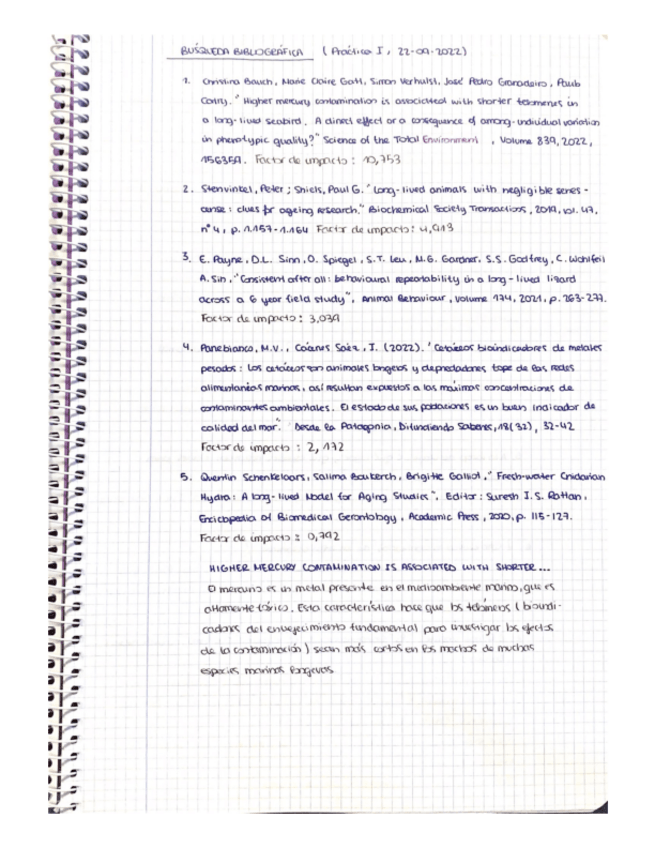 BÚSQUEDA BIBLIOGRÁFICA ( Práctica I, 22-09-2022)
1. Christina Bauch, Marie Claire Gatt, Simon Verhulst, José Pedro Granadeiro, Paulo
Catry. "Higher mercury contamination is associated with shorter telomeres in
a long-lived seabird. A direct effect or a consequence of among-individual variation
in phenotypic quality?" Science of the Total Environment, Volume 839, 2022,
156359. Factor de impacto: 10,753
2. Stenvinkel, Peter; Shiels, Paul G. "Long-lived animals with negligible senes-
cense: clues for ageing research." Biochemical Society Transactions, 2019, vol. 47,
nº 4, p. 1.157-1.164 Factor de impacto: 4,919
3. E. Payne, D.L. Sinn, O. Spiegel, S.T. Leu, M.G. Gardner, S.S. Godfrey, C. Wohlfeil
A. Sih, "Consistent after all: behavioural repeatability in a long-lived lizard
across a 6 year field study", Animal Behaviour, volume 174, 2021, p. 263-277.
Factor de impacto: 3,039
4. Panebianco, M.V., Sáez, I. (2022). "Cetáceos bioindicadores de metales
pesados: Los cetáceos son animales longevos y depredadores tope de las redes
alimentarias marinas, así resultan expuestos a las máximas concentraciones de
contaminantes ambientales. El estado de sus poblaciones es un buen indicador de
calidad del mar." Desde la Patagonia, Difundiendo Saberes, 18(32), 32-42
Factor de impacto: 2,172
5. Quentin Schenkelaars, Salima Boukerch, Brigitte Galliot, "Fresh-water Cnidarian
Hydra: A long-lived Model for Aging Studies", Editor: Suresh I.S. Rattan,
Enciclopedia of Biomedical Gerontology, Academic Press, 2020, p. 115-127.
Factor de impacto: 0,792
HIGHER MERCURY CONTAMINATION IS ASSOCIATED WITH SHORTER...
El mercurio es un metal presente en el medioambiente marino, que es
altamente tóxico. Esta característica hace que los telómeros (bioindi-
cadores del envejecimiento fundamental para investigar los efectos
de la contaminación) sean más cortos en los machos de muchas
especies marinas longevas